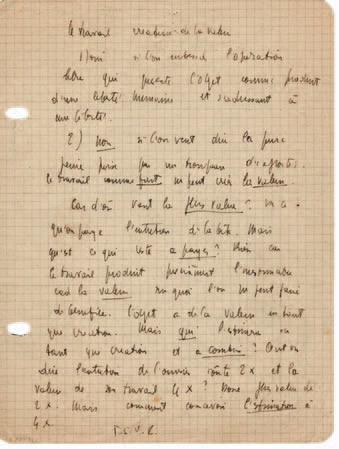 le travail créateur de la valeur
1) oui si l'on entend l'opération
libre qui l'objet comme produit
d'une liberté humaine et s'adressant à
une liberté.
2) non si l'on veut dire la pure
peine prise par un d'efforts.
le travail comme ne peut créer la valeur.
Car d'où vient la plus value ?
qu'on paye l'entretien de la bête. Mais
qu'est ce qui reste a payer ? Rien car
le travail produit précisément
càd la valeur. sur quoi l'on ne peut faire
de bénéfice. L'objet a de la valeur en tant
que création. Mais qui l'estimera en
tant que création et a combien ? Peut on
dire l'entretien de l'ouvrier coûte 2x et la
valeur de son travail 4x ? Donc plus value de
2x. Mais comment concevoir l'estimation à
4x.